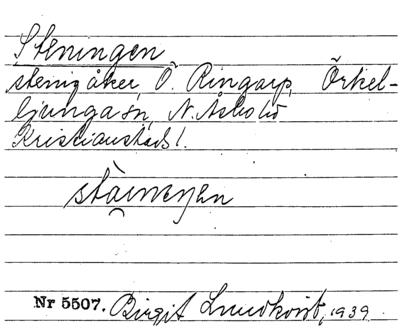 Steningen
stenig åker, Ö. Ringarp, Örkel-
ljunga sn, N. Åsbo hd
Kristianstads l.
stäineŋen
Nr 5507. Birgit Lundkvist, 1939